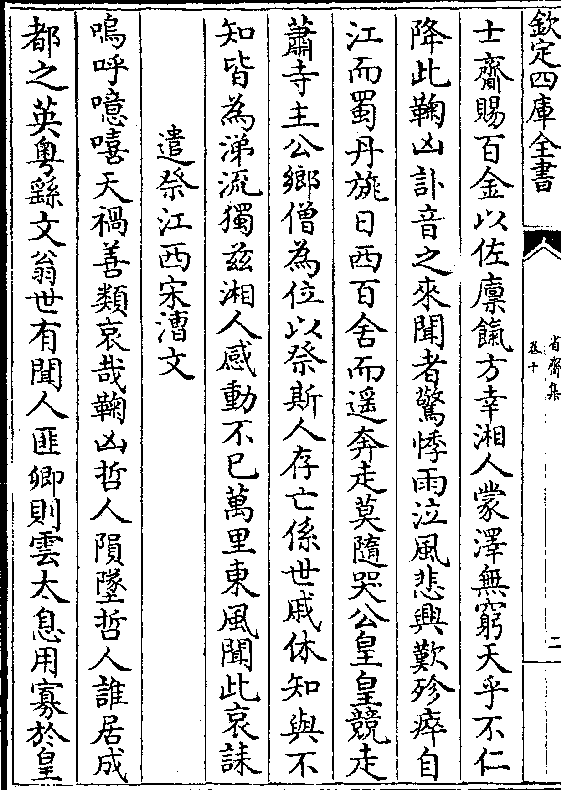 欽定四庫全書
省齋集
卷十
二
士齋賜百金以佐廩餼方幸湘人蒙澤無窮天乎不仁
降此鞠凶訃音之來聞者驚悸雨泣風悲興歎殄瘁自
江而蜀丹旐日西百舍而遥奔走莫隨哭公皇皇競走
蕭寺主公鄉僧為位以祭斯人存亡係世戚休知與不
知皆為涕流獨兹湘人感動不已萬里東風聞此哀誄
遣祭江西宋漕文
嗚呼噫嘻天禍善類哀哉鞠凶哲人隕墜哲人誰居成
都之英粤繇文翁世有聞人匪卿則雲太息用寡於皇